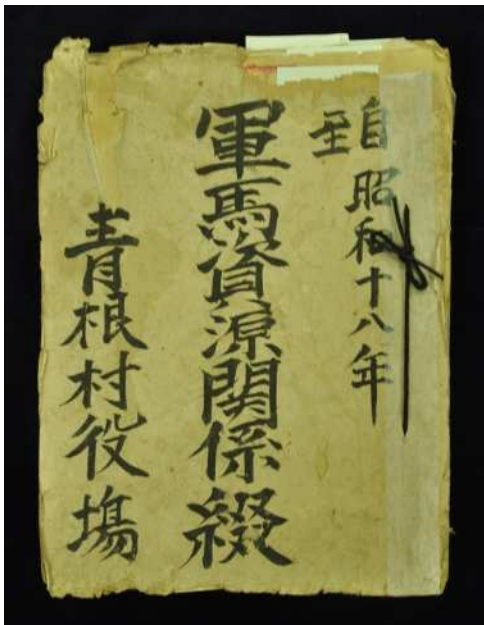 自昭和十八年
至
軍馬資源関係綴
青根村役場